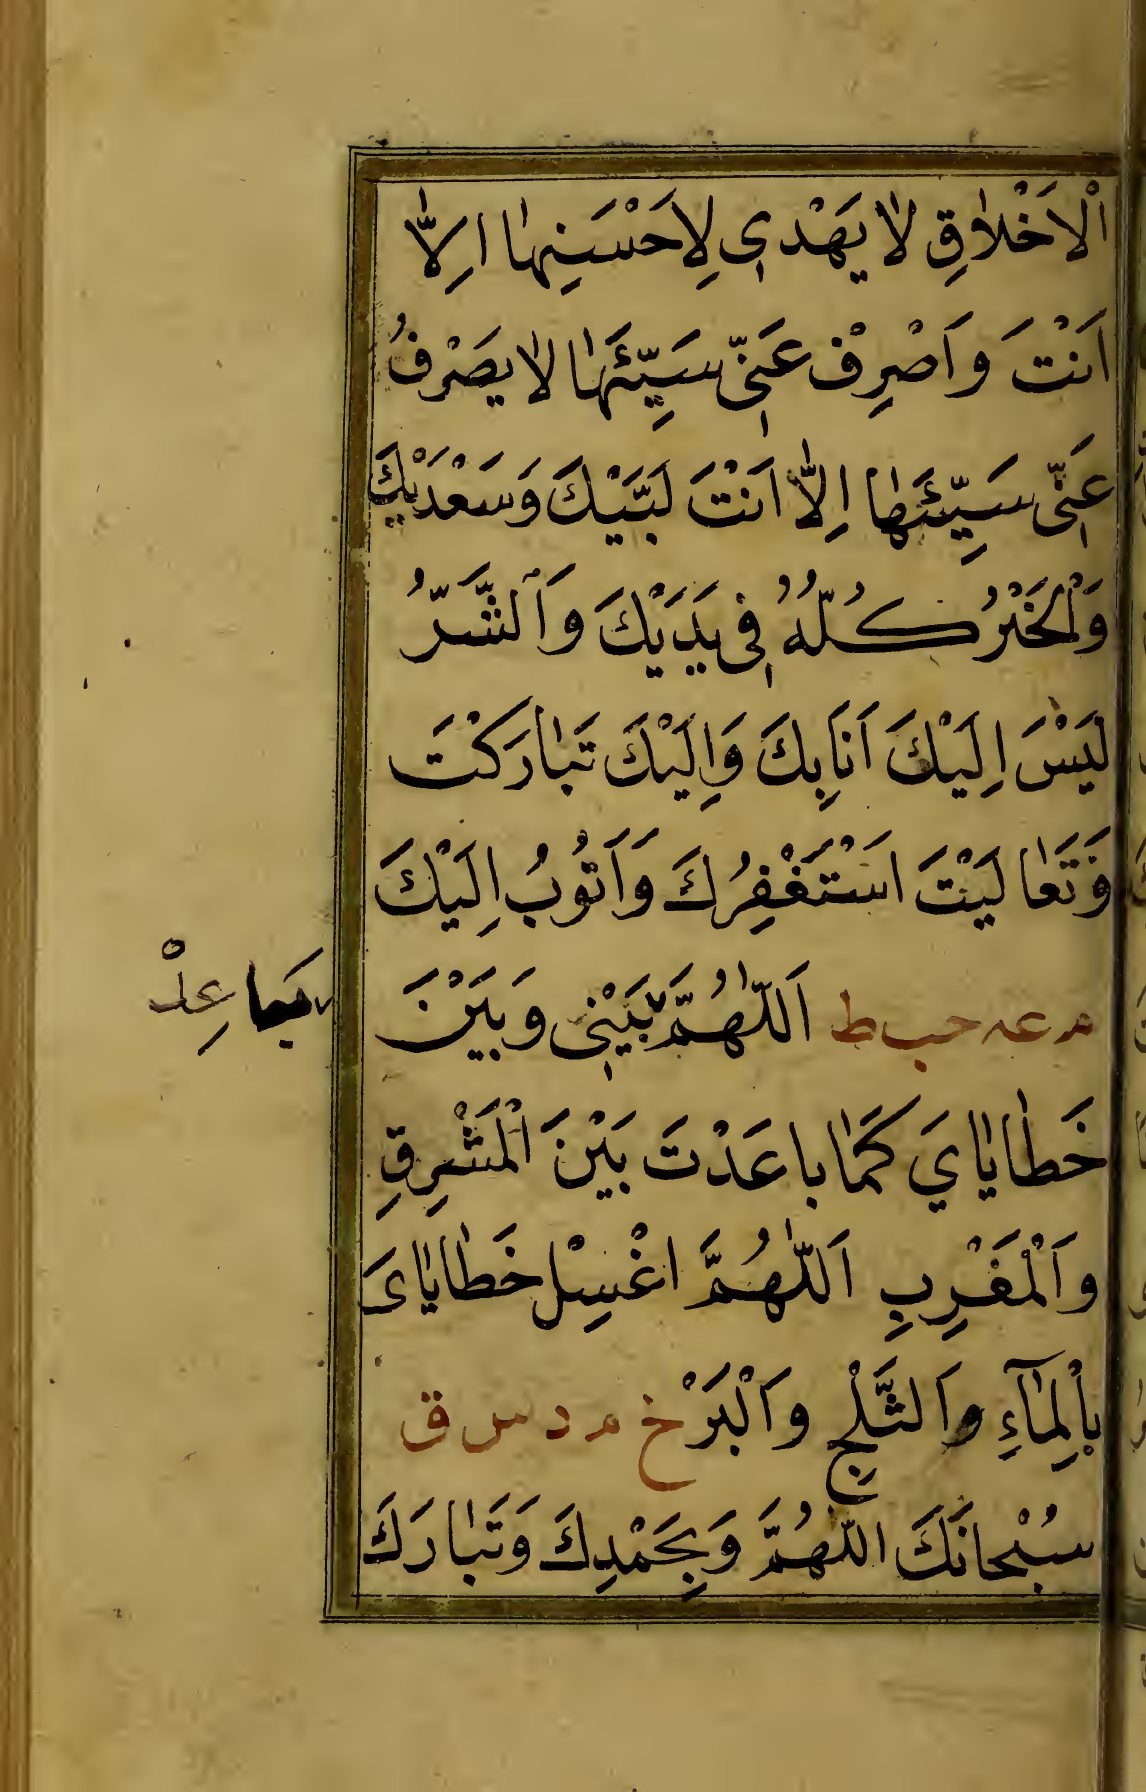 اْلاَخْلاٰقِ لاٰ يَهْدٖى لِاَحْسَنِهٰا اِلاّٰ
اَنْتَ وَاَصْرِفْ عَنّٖى سَيِّئَهٰا لاٰ يَصْرَفُ
عَنّٖى سَيِّئَهٰا اِلاّٰ اَنْتَ لَبَّيْكَ وَسَعْدَيْكَ
وَالْخَيْرُ كُلُّهُ فٖى يَدَيْكَ وَاَلشَّرُّ
لَيْسَ اِلَيْكَ اَنَا بِكَ وَاِلَيْكَ تَبٰارَكْتَ
وَتَعٰالَيْتَ اَسْتَغْفِرُكَ وَاَتُوبُ اِلَيْكَ
م عه حب ط اَللّٰهُمَّ بَيْنٖى وَبَيْنَ
باعِدْ
خَطٰايٰايَ كَمٰا باعَدْتَ بَيْنَ الْمَشْرِقِ
وَاَلْمَغْرِبِ اَللّٰهُمَّ اغْسِلْ خَطٰايٰاىَ
بِاْلمٰآءِ وَاَلثَّلْجِ وَاَلْبَرْ خ م د س ق
سُبْحانَكَ اللّٰهُمَّ وَبِحَمْدِكَ وَتَبٰارَكَ